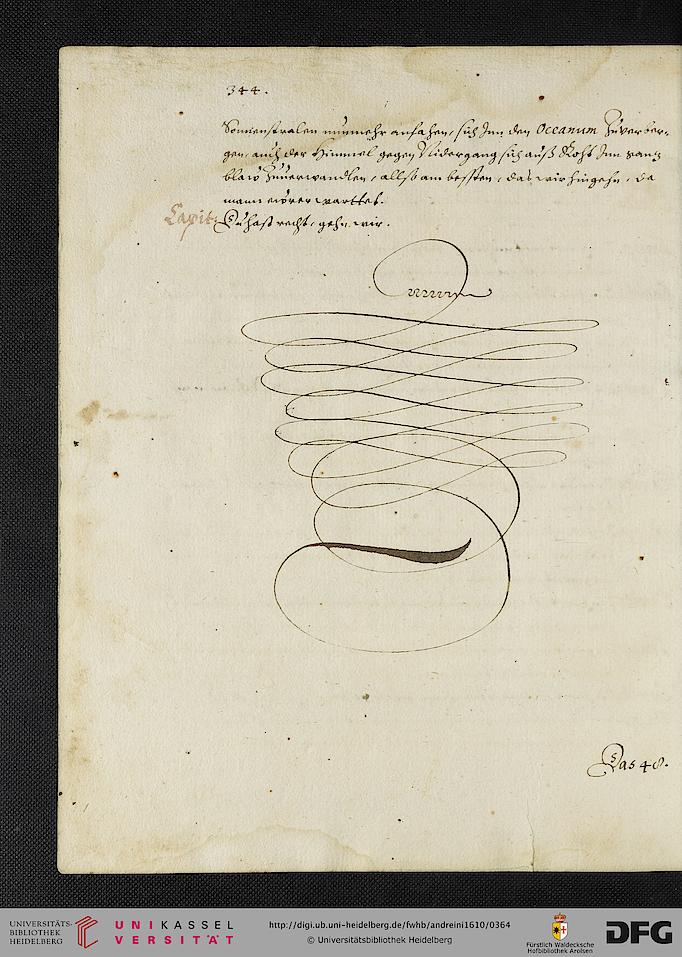 344.
Sonnenstralen nunmehr anfahen, sich Inn den Occanum Zuverber-
gen, auch der Himmel gegen Nidergang sich auß Roht Inn gantz
blaw Zuverwandlen, allso am bessten, das wir hingehn, da
mann wartet.
Capit: Du hast recht, gehn wir.
Das 48.
UNIVERSITÄTS-
BIBLIOTHEK
HEIDELBERG
UNIKASSEL
VERSITÄT
http://digi.ub.uni-heidelberg.de/fwhb/andreini1610/0364
© Universitätsbibliothek Heidelberg
Fürstlich Waldecksche
Hofbibliothek Arolsen
DFG